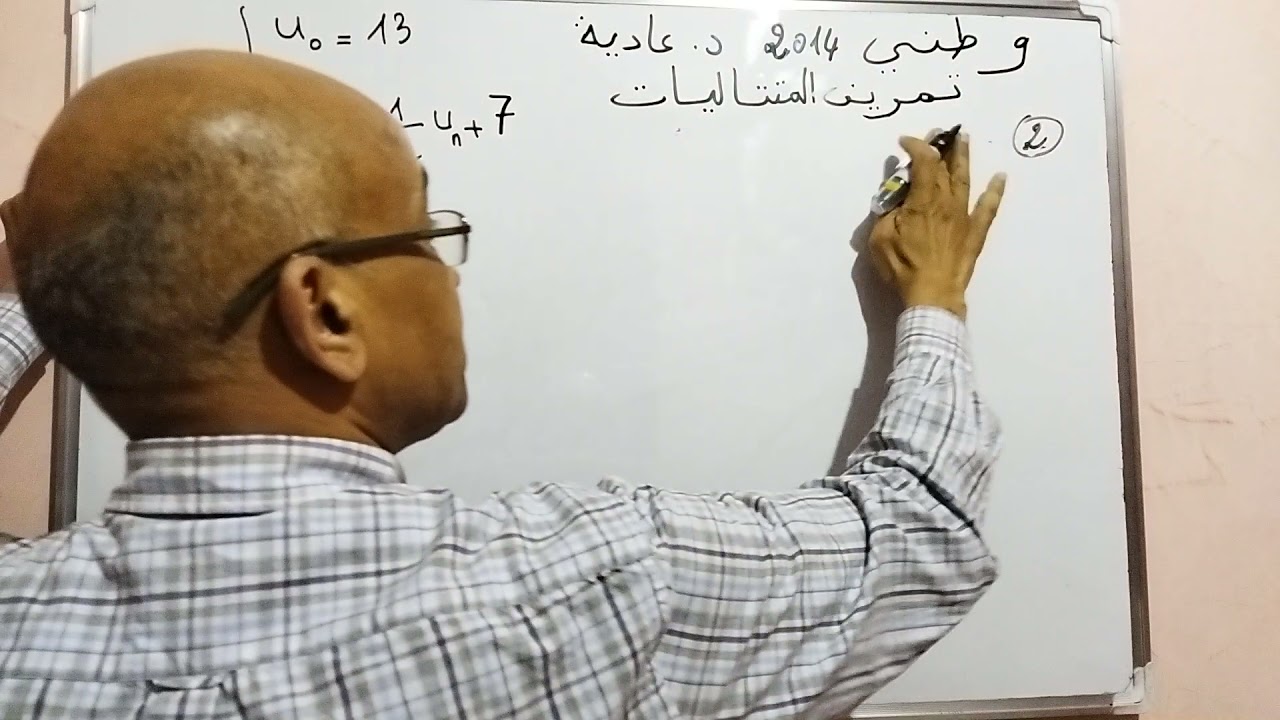 وطني 2014 د. عادية
تمرين المتتاليات
2
u₀ = 13
uₙ + 7